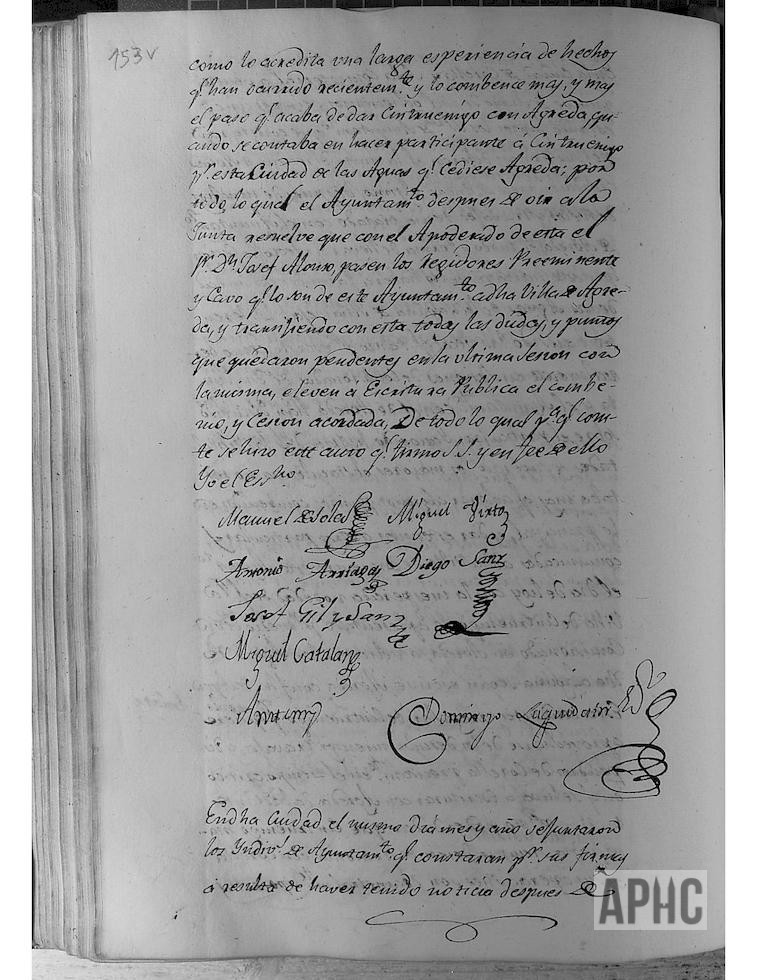 153v
como lo acredita una larga esperiencia de hechos
q.e han ocurrido recientem.te y lo combence mas, y mas
el paso q.e acaba de dar Cintruenigo con Agreda, qu-
ando se contaba en hacer participante á Cintruenigo
p.r esta Ciudad de las Aguas q.e cediese Agreda; por
todo lo qual el Ayuntam.to despues de oir a la
Junta resuelve que con el Apoderado de esta el
S.r D.n Josef Alonso, pasen los Regidores Preeminente
y Cavo q.e lo son de este Ayuntam.to a dha Villa de Agre-
da, y transijiendo con esta todas las dudas, y puntos
que quedaron pendentes en la ultima sesion con
la misma, eleven á Escritura Publica el combe-
nio, y Cesion acordada, De todo lo qual p.a q.e cons-
te se hizo este auto q.e firmó S.S. y en fee de ello
Yo el Es.no
Manuel de Soles Miguel Virto
Antonio Arriaga Diego Sanz
Josef Gil y Sanz
Miguel Catalan
Ante mi
Domingo
En dha Ciudad el mismo dia mes y año se juntaron
los Yndiv.s de Ayuntam.to q.e constaran p.r sus firmas
á resulta de haver tenido noticia despues de
APHC